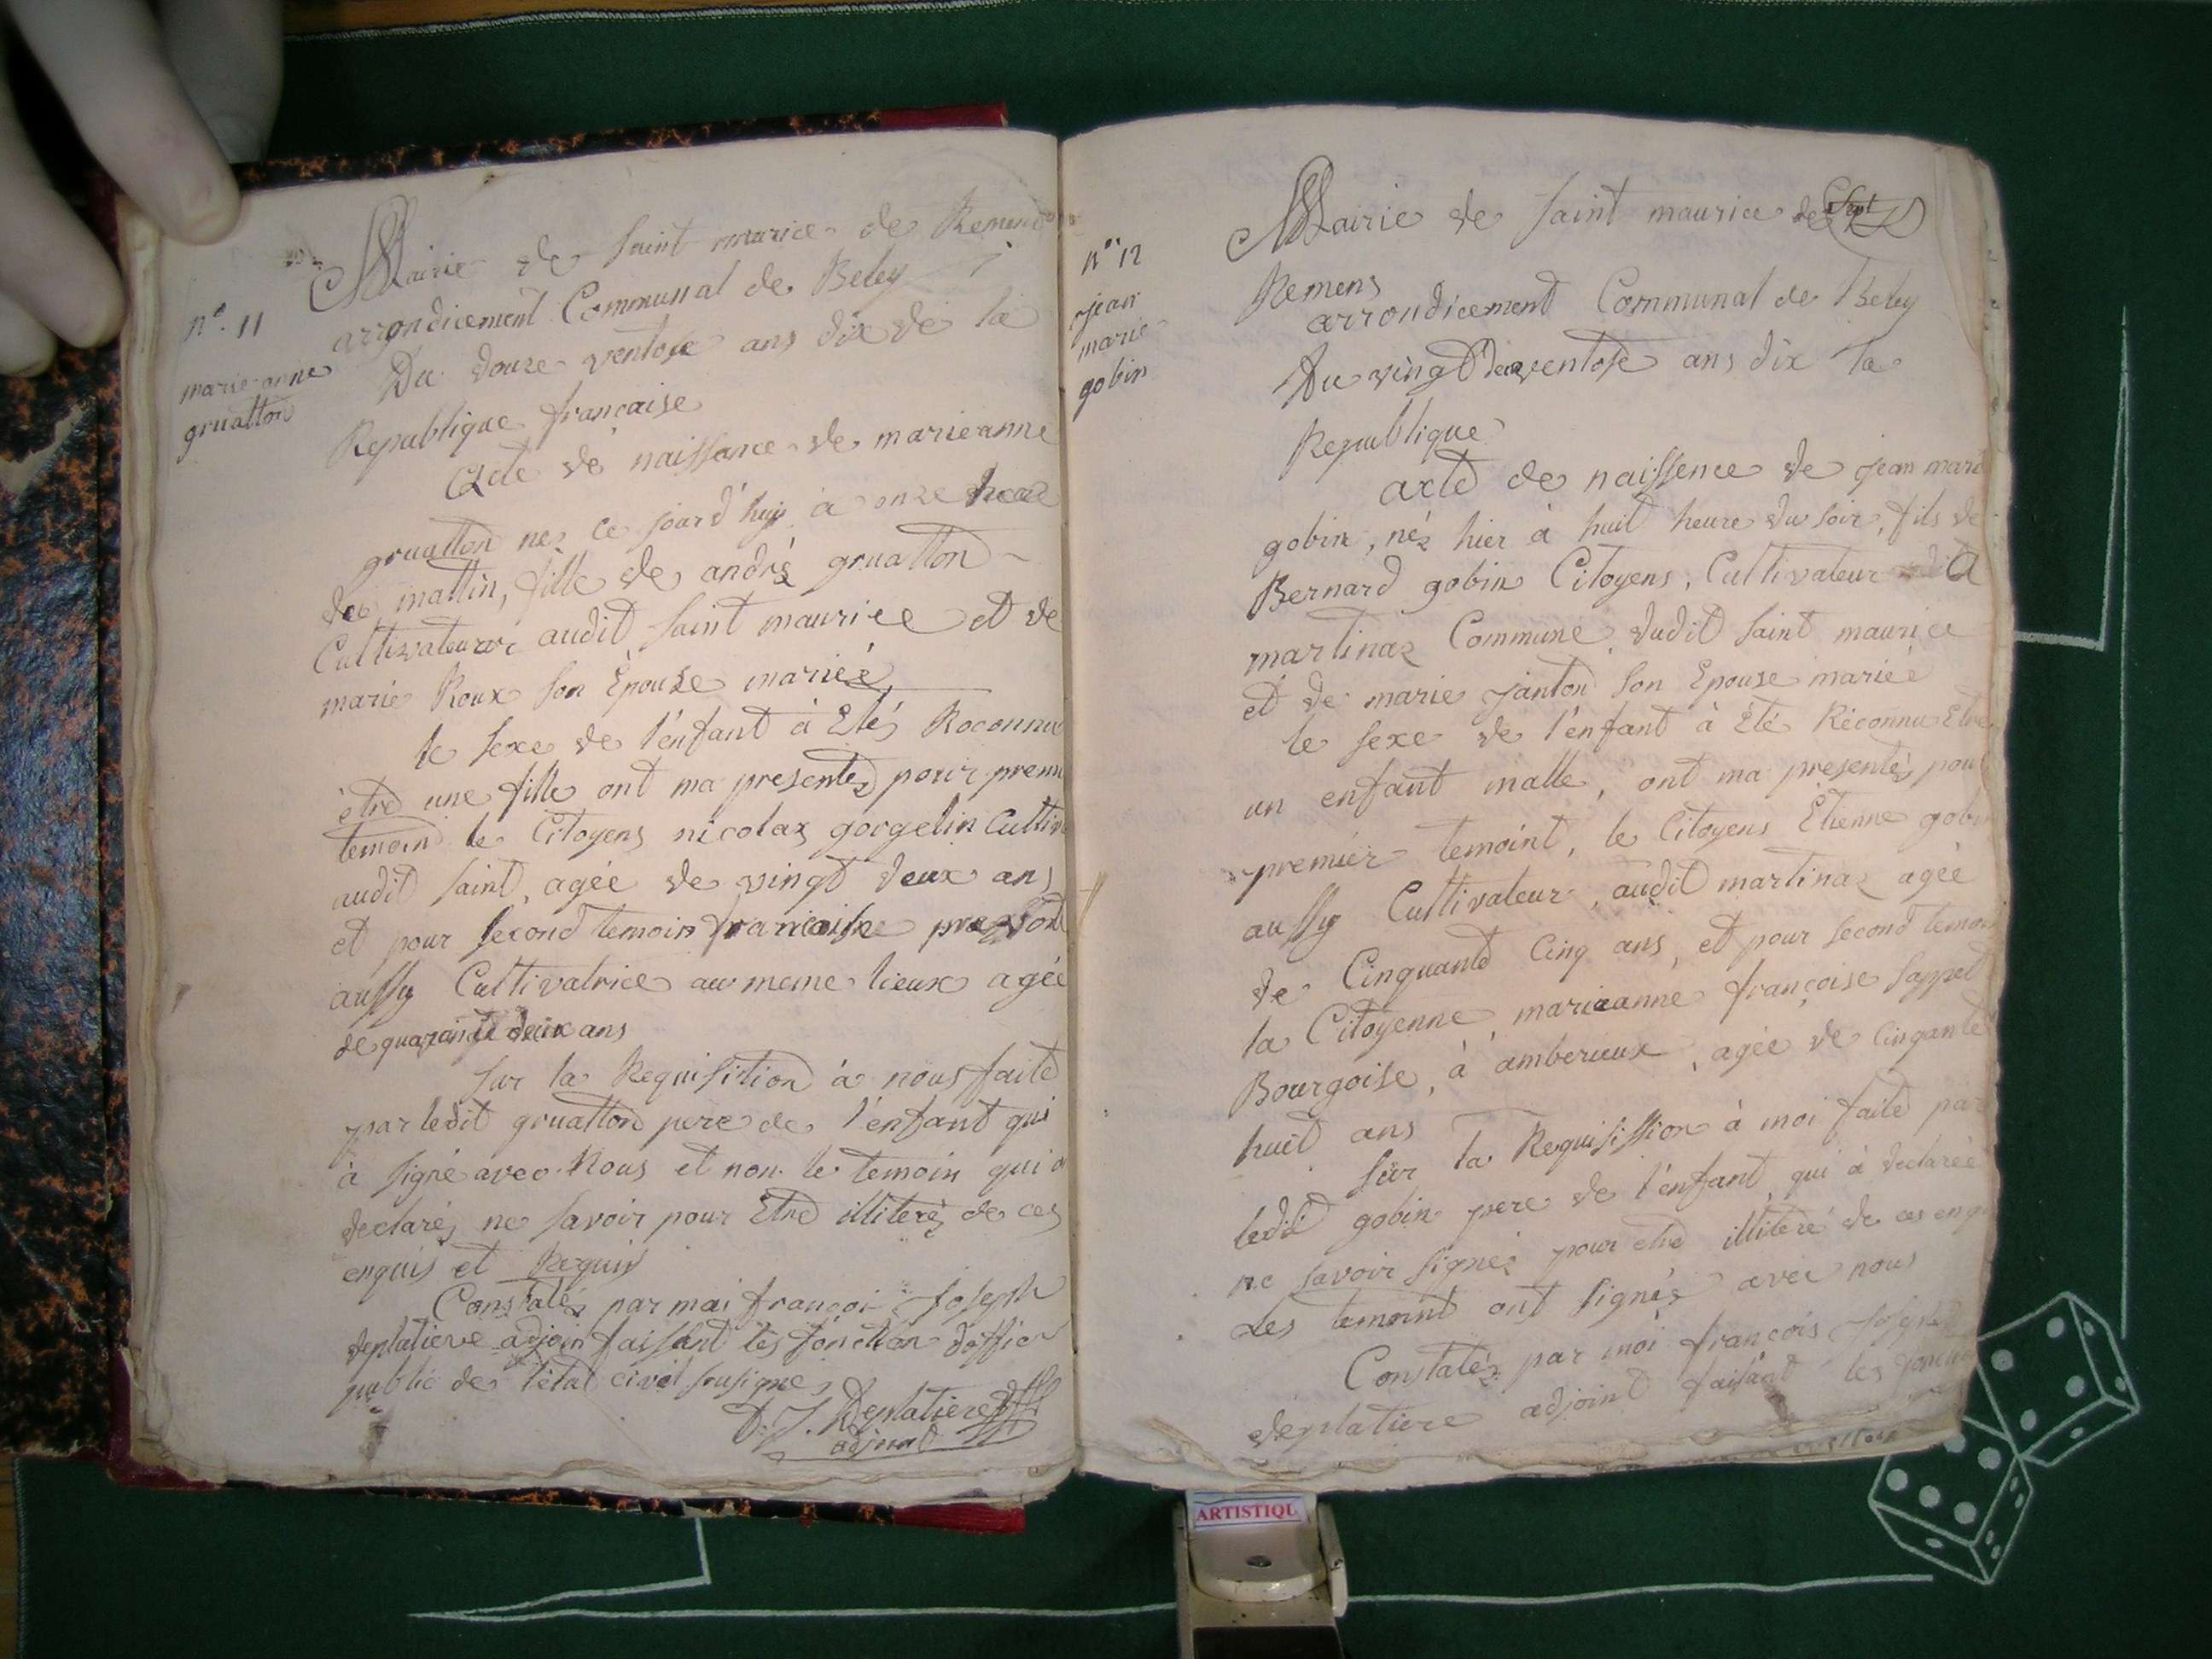 n°. 11
marie anne
gruatton
Mairie de saint maurice de Remens
arrondicement Communal de Beley
Du douze ventose ans dix de la
Republique française
Acte de naissance de marieanne
gruatton nez ce jourd'huy à onze
du mattin, fille de andré gruatton
Cultivateur audit saint maurice et de
marie Roux son Epouse mariéé
le sexe de l'enfant à Etés Roconnu
étre une fille ont ma presentez pour premi
temoin le Citoyens nicolas gorgelin Cultiv
audit saint, agée de vingt deux ans
et pour second temoin francoise
aussy Cultivatrice au meme lieux agée
de quarante deux ans
sur la Requisition à nous faite
par ledit gruatton pere de l'enfant qui
à signé avec Nous et non le temoin qui a
declarés ne savoir pour Etre illiterés de ces
enquis et Requis
Constatéz par moi françois Joseph
deplatiere adjoin faissant les fonction d'officier
public de l'état civil sousignéz
D. J. Deplatiere
adjoint
n° 12
jean
marie
gobin
Mairie de saint maurice de
Remens
arrondicement Communal de Beley
Du vingt ventose ans dix la
Republique
acte de naissence de jean mari
gobin, néz hier à huit heure du soir, fils de
Bernard gobin Citoyens, Cultivateur a
martinaz Commune dudit saint maurice
et de marie janton son Epouse mariéé
le sexe de l'enfant à Eté Réconnu Etre
un enfant malle, ont ma presentés pour
premier temoint, le Citoyens Etienne gobin
aussy Cultivateur, audit martinaz agéé
de Cinquante Cinq ans, et pour second temoin
la Citoyenne, marieanne françoise sappet
Bourgoise, à amberieux, agée de Cinqante
huit ans
sur la Requisission à moi faite par
ledit gobin pere de l'enfant qui à declaréé
ne savoir signez pour etre illiteré de ces enqui
Les temoint ont signés avec nous
Constatéz par moi françois Joseph
deplatiere adjoint faisant les fonction